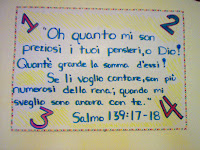 1 2
"Oh quanto mi son
preziosi i tuoi pensieri, o Dio!
Quant'è grande la somma d'essi!
Se li voglio contare, son più
numerosi della rena; quando mi
sveglio sono ancora con te."
Salmo 139:17-18
3 4